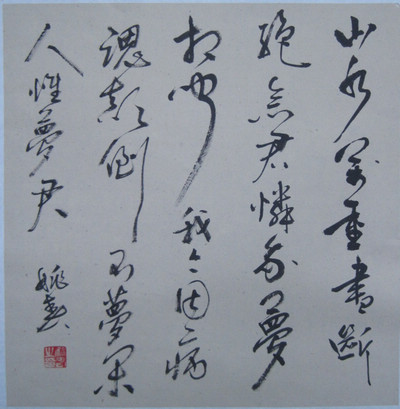 山水萬重書断
絕念君憐我夢
相聞我今因病
魂顛倒不夢閑
人惟夢君
姚